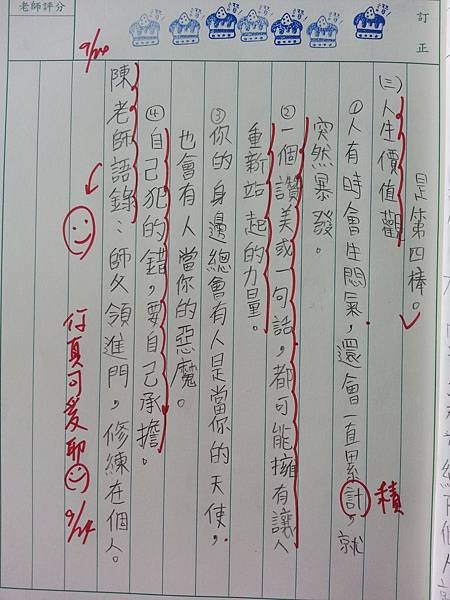 訂正
老師評分
讚
讚
讚
讚
讚
讚
讚
是第四棒。
(二)人生價值觀
①人有時會生悶氣,還會一直累計,就
積
突然暴發。
②一個讚美或一句話,都可能擁有讓人
重新站起的力量。
③你的身邊總會有人是當你的天使,
也會有人當你的惡魔。
④自己犯的錯,要自己承擔。
陳老師語錄:師父領進門,修練在個人。
9/24
你真可愛耶
9/24